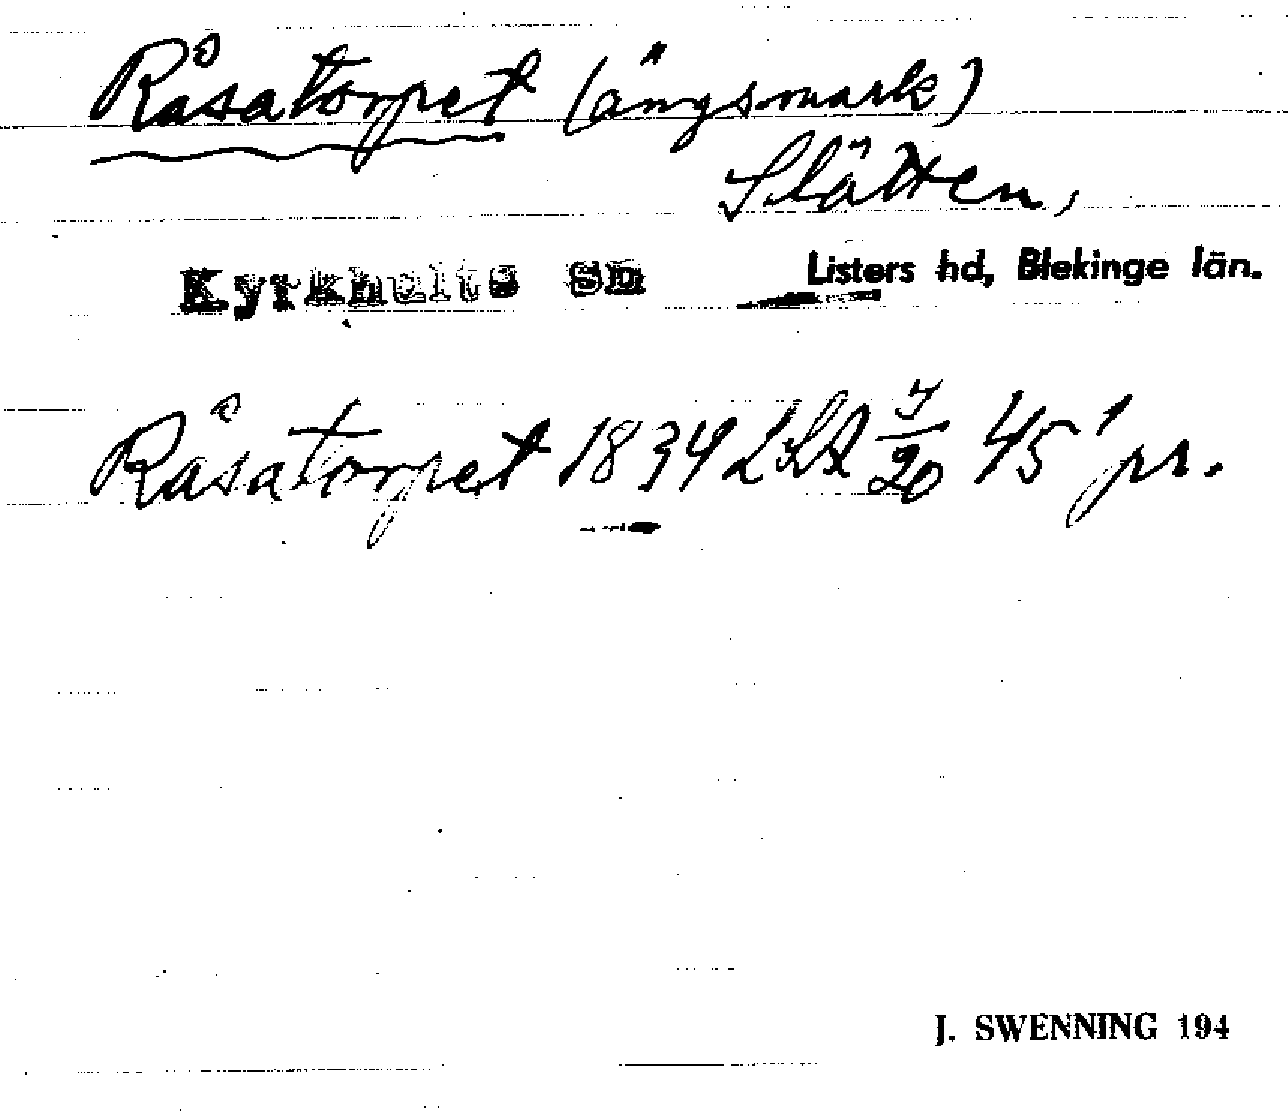 Råsatorpet (ängsmark)
Slätten,
Kyrkhults Sn Listers hd, Blekinge län.
Råsatorpet 1834 LSA 7/20 45' pr.
J. SWENNING 194